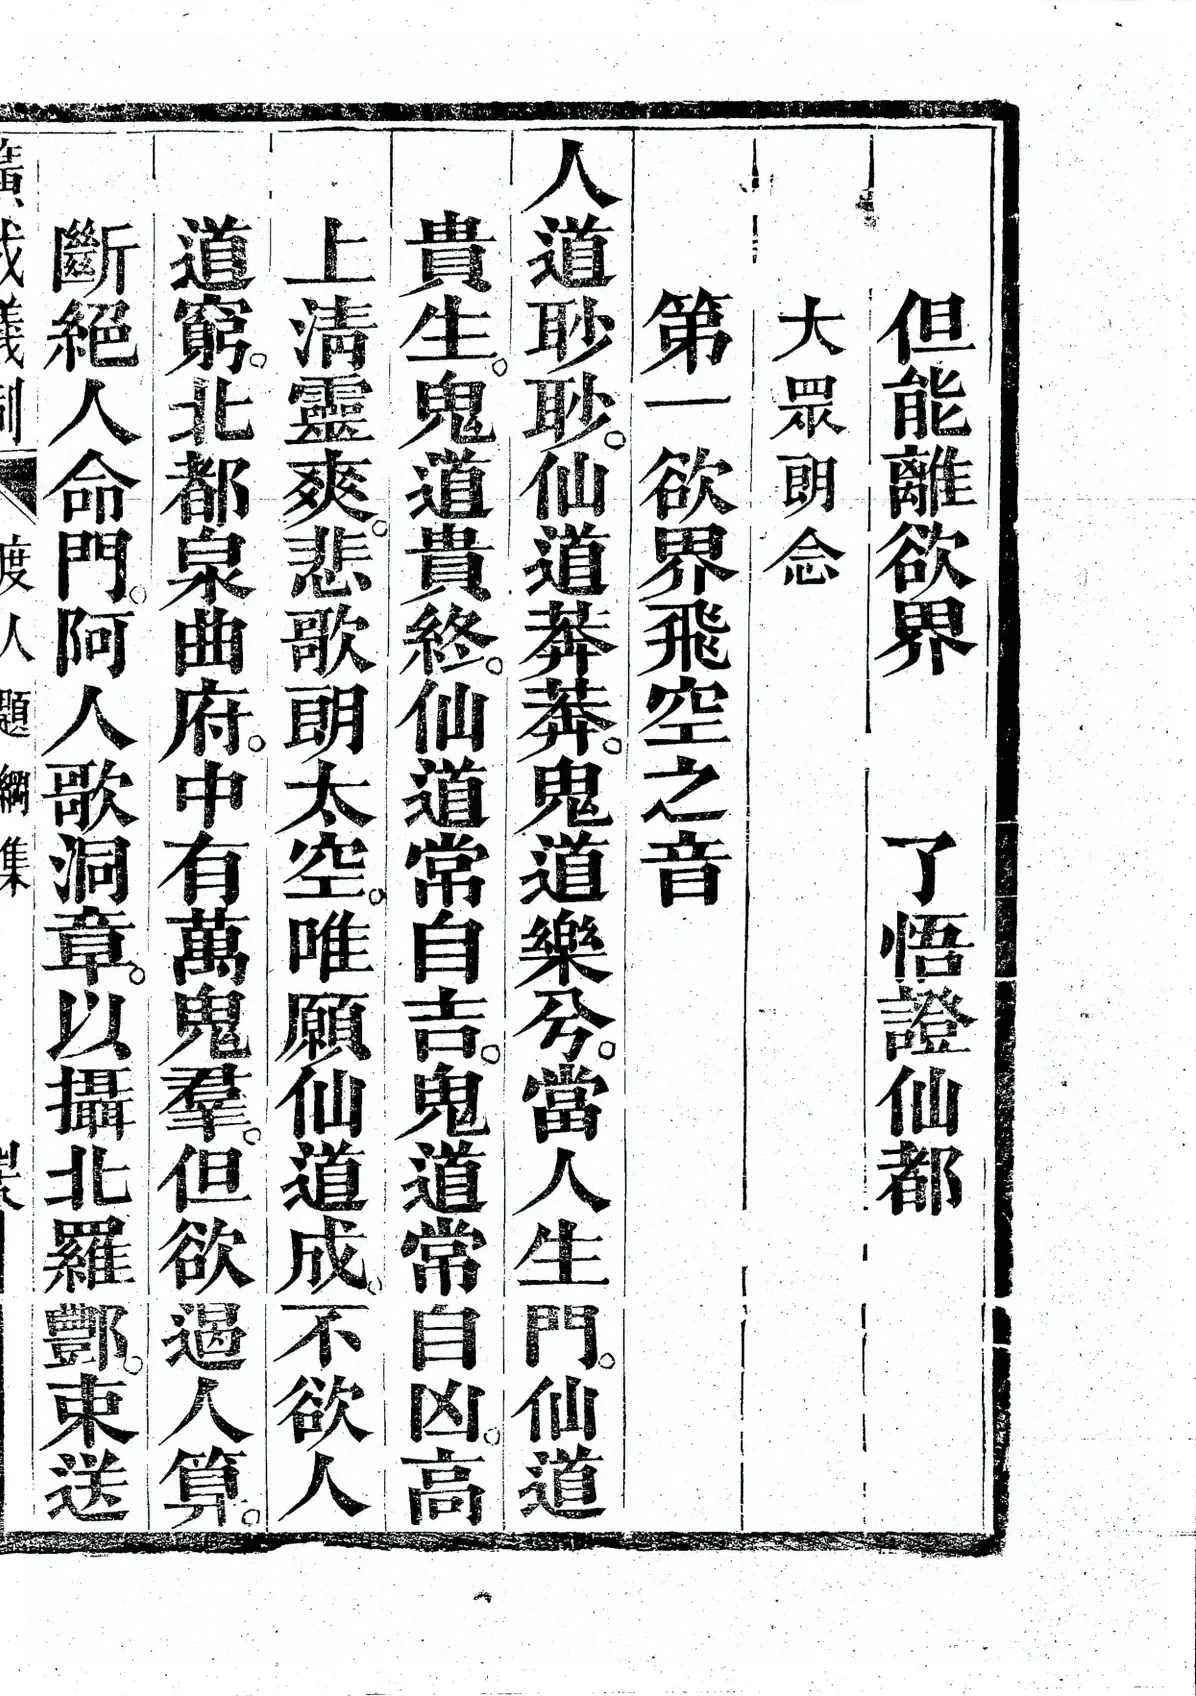 但能離欲界　了悟證仙都
大眾朗念
第一欲界飛空之音
人道眇眇。仙道莽莽。鬼道樂兮。當人生門。仙道
貴生。鬼道貴終。仙道常自吉。鬼道常自凶。高
上清靈爽。悲歌朗太空。唯願仙道成。不欲人
道窮。北都泉曲府。中有萬鬼羣。但欲遏人算。
斷絕人命門。阿人歌洞章。以攝北羅酆。束送
廣成儀制　度人題綱集